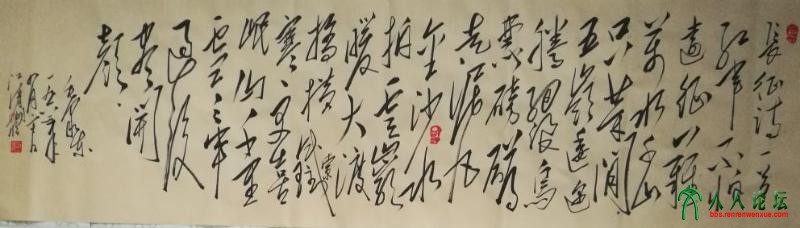 长征诗一首
红军不怕
远征难
万水千山
只等闲
五岭逶迤
腾细浪乌
蒙磅礴
走泥丸
金沙水
拍云崖
暖大渡
桥横铁索
寒更喜
岷山千里
雪三军
过后
尽开
颜
毛泽东
人人论坛
bbs.renrenwenxue.com